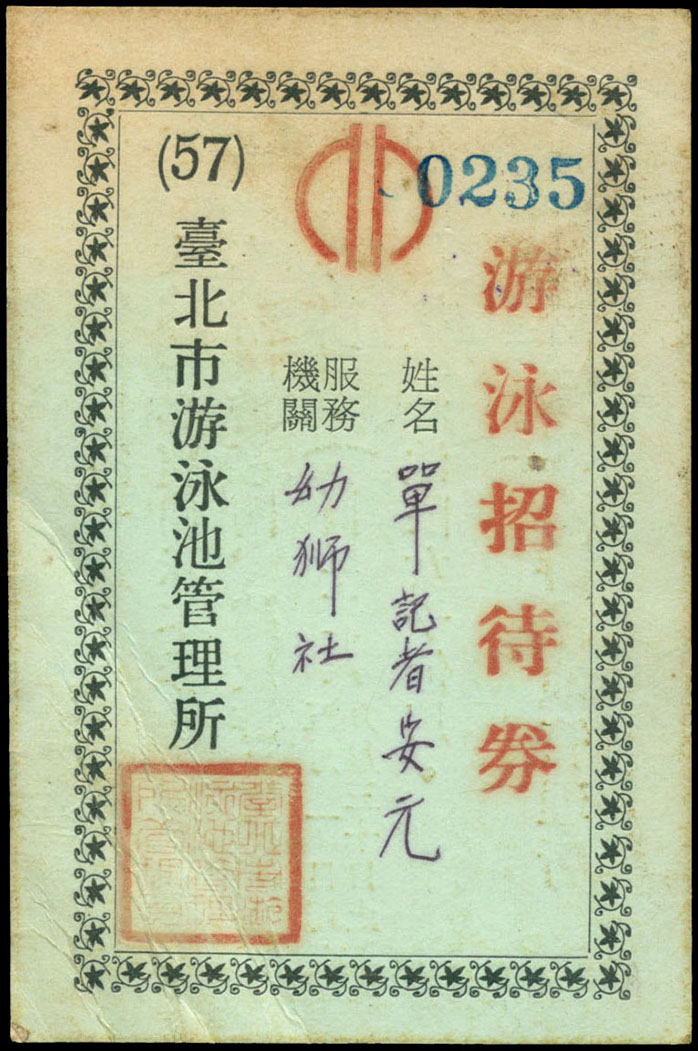 0235
游泳招待券
姓名 單記者安元
服務機關 幼獅社
(57) 臺北市游泳池管理所